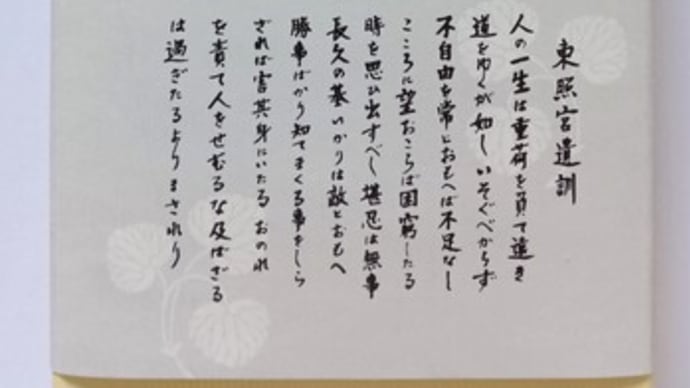 東照宮遺訓
人の一生は重荷を負て遠き
道をゆくが如し いそぐべからず
不自由を常とおもへば不足なし
こころに望おこらば困窮したる
時を思ひ出すべし 堪忍は無事
長久の基 いかりは敵とおもへ
勝事ばかり知てまくる事をしら
ざれば害其身にいたる おのれ
を責て人をせむるな 及ばざる
は過ぎたるよりまされり